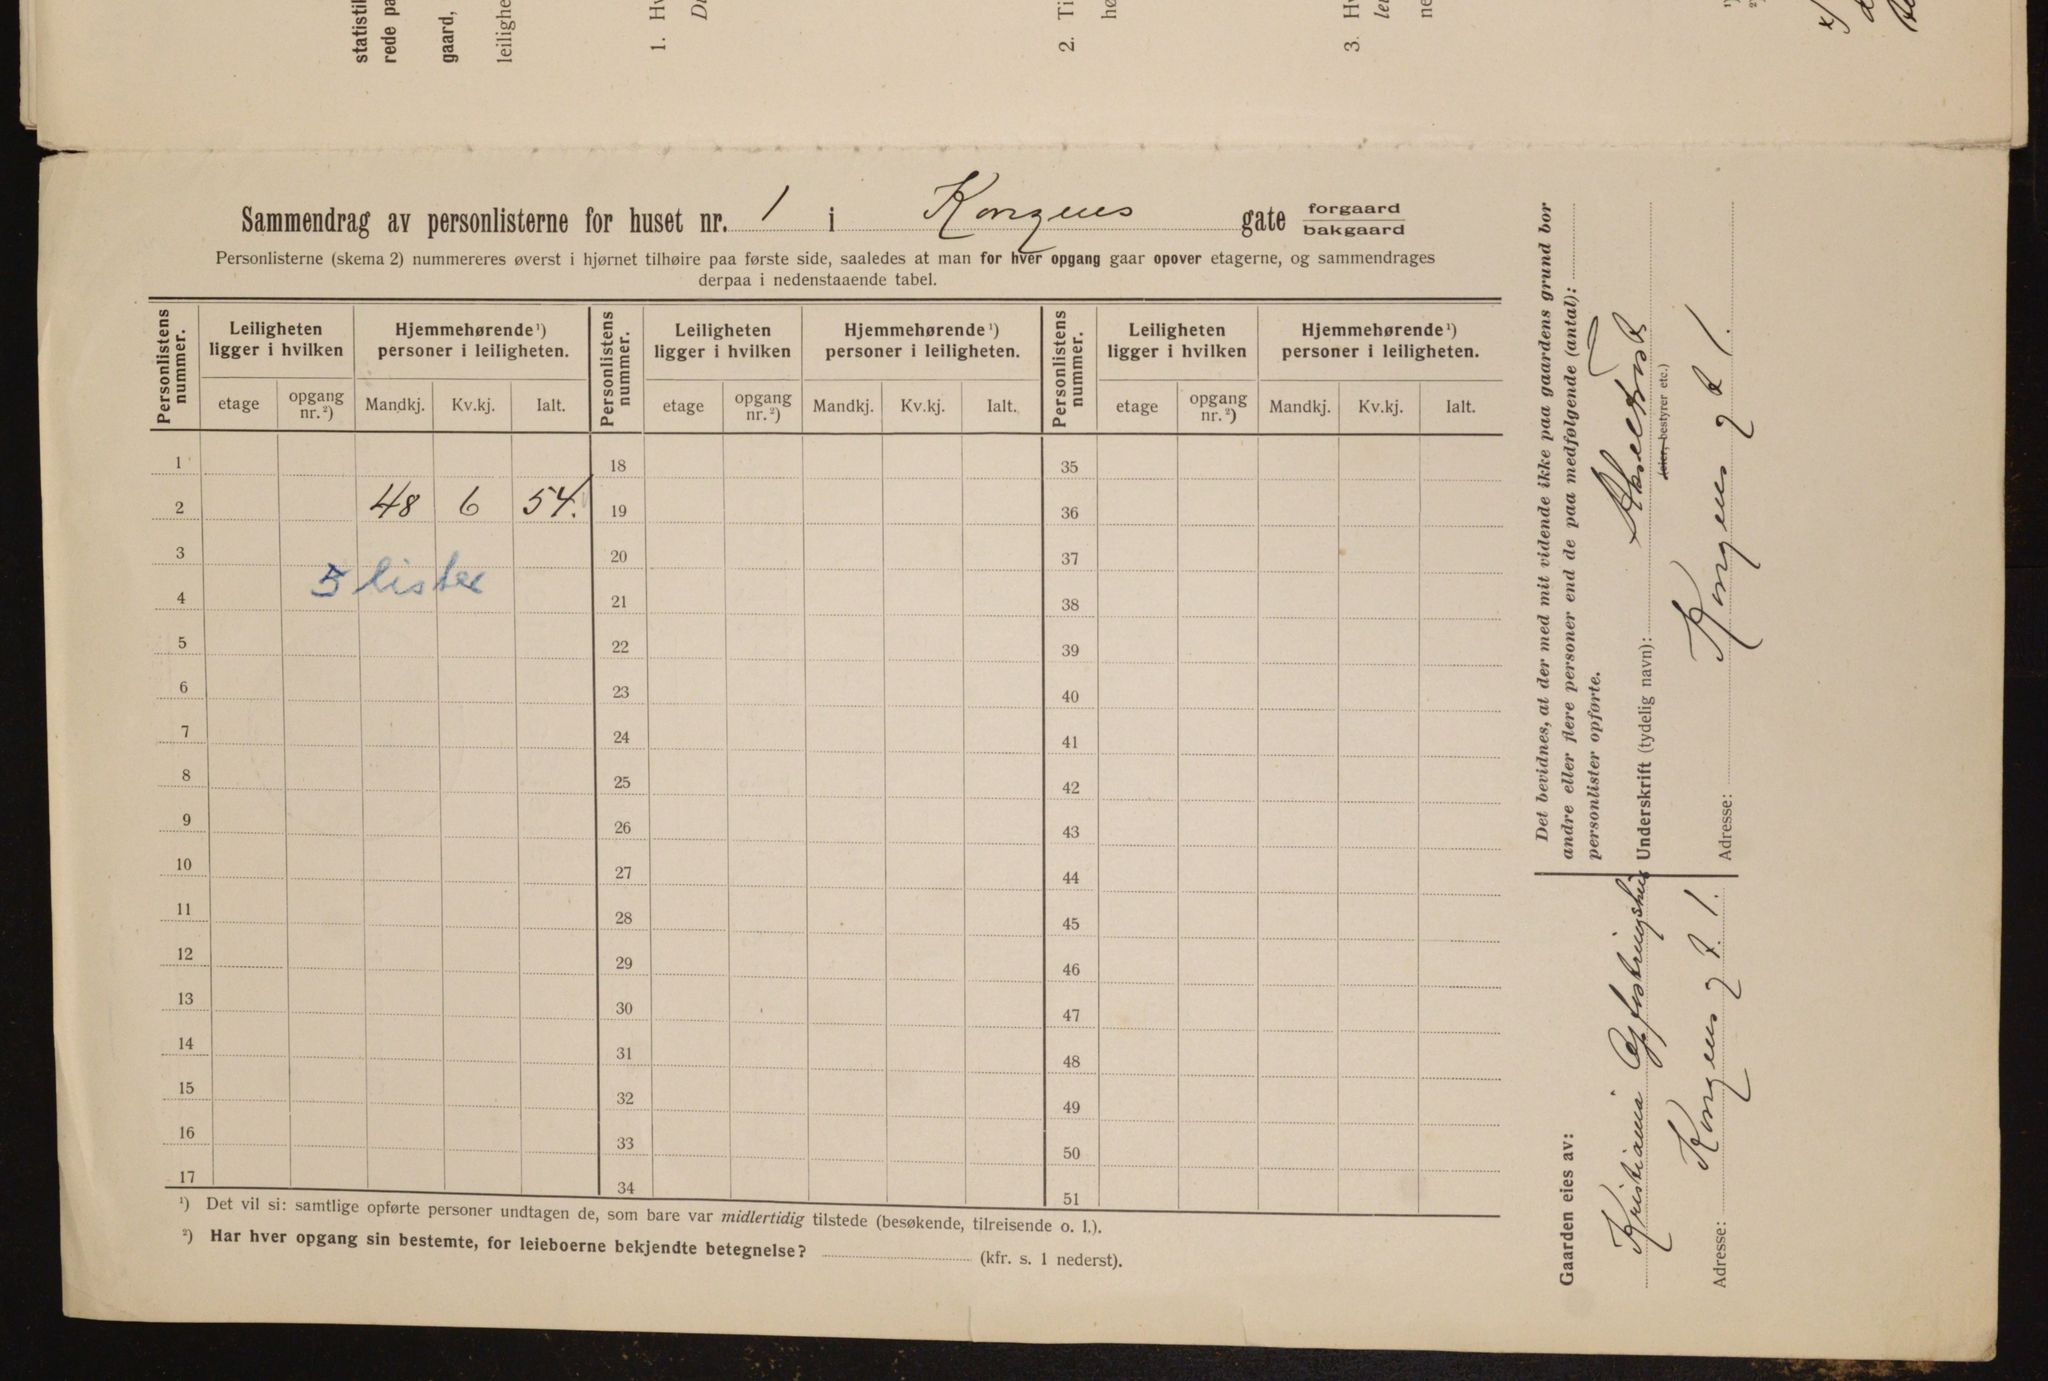 statistik
rede pa
gaard,
leilighe
1. Hv
2. Ti
hø
3. Hv
ne
Sammendrag av personlisterne for huset nr. 1 i Kongens gate forgaard
bakgaard
Personlisterne (skema 2) nummereres øverst i hjørnet tilhøire paa første side, saaledes at man for hver opgang gaar opover etagerne, og sammendrages
derpaa i nedenstaaende tabel.
Personlistens nummer. Leiligheten ligger i hvilken Hjemmehørende ¹) personer i leiligheten. Personlistens nummer. Leiligheten ligger i hvilken Hjemmehørende ¹) personer i leiligheten. Personlistens nummer. Leiligheten ligger i hvilken Hjemmehørende ¹) personer i leiligheten.
etage opgang nr. ²) Mandkj. Kv.kj. Ialt. etage opgang nr. ²) Mandkj. Kv.kj. Ialt. etage opgang nr. ²) Mandkj. Kv.kj. Ialt.
1 18 35
2 48 6 54. 19 36
3 20 37
5 lister
4 21 38
5 22 39
6 23 40
7 24 41
8 25 42
9 26 43
10 27 44
11 28 45
12 29 46
13 30 47
14 31 48
15 32 49
16 33 50
17 34 51
¹) Det vil si: samtlige opførte personer undtagen de, som bare var midlertidig tilstede (besøkende, tilreisende o. l.).
²) Har hver opgang sin bestemte, for leieboerne bekjendte betegnelse? (kfr. s. 1 nederst).
Det bevidnes, at der med mit vidende ikke paa gaardens grund bor
andre eller flere personer end de paa medfølgende (antal):
personlister opførte.
Underskrift (tydelig navn):
(eier, bestyrer etc.)
Adresse: Kongens gt 1.
Gaarden eies av:
Kristiania Opfostringshus
Adresse: Kongens gt. 1.